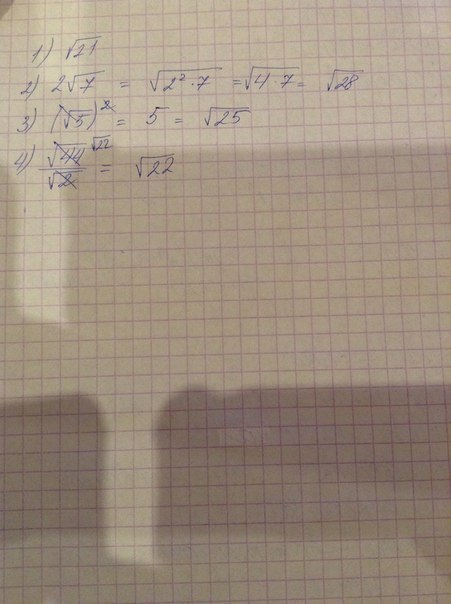 1) √21
2) 2√7 = √2²·7 = √4·7 = √28
3) (√5)² = 5 = √25
4) √44 √22 / √2 = √22